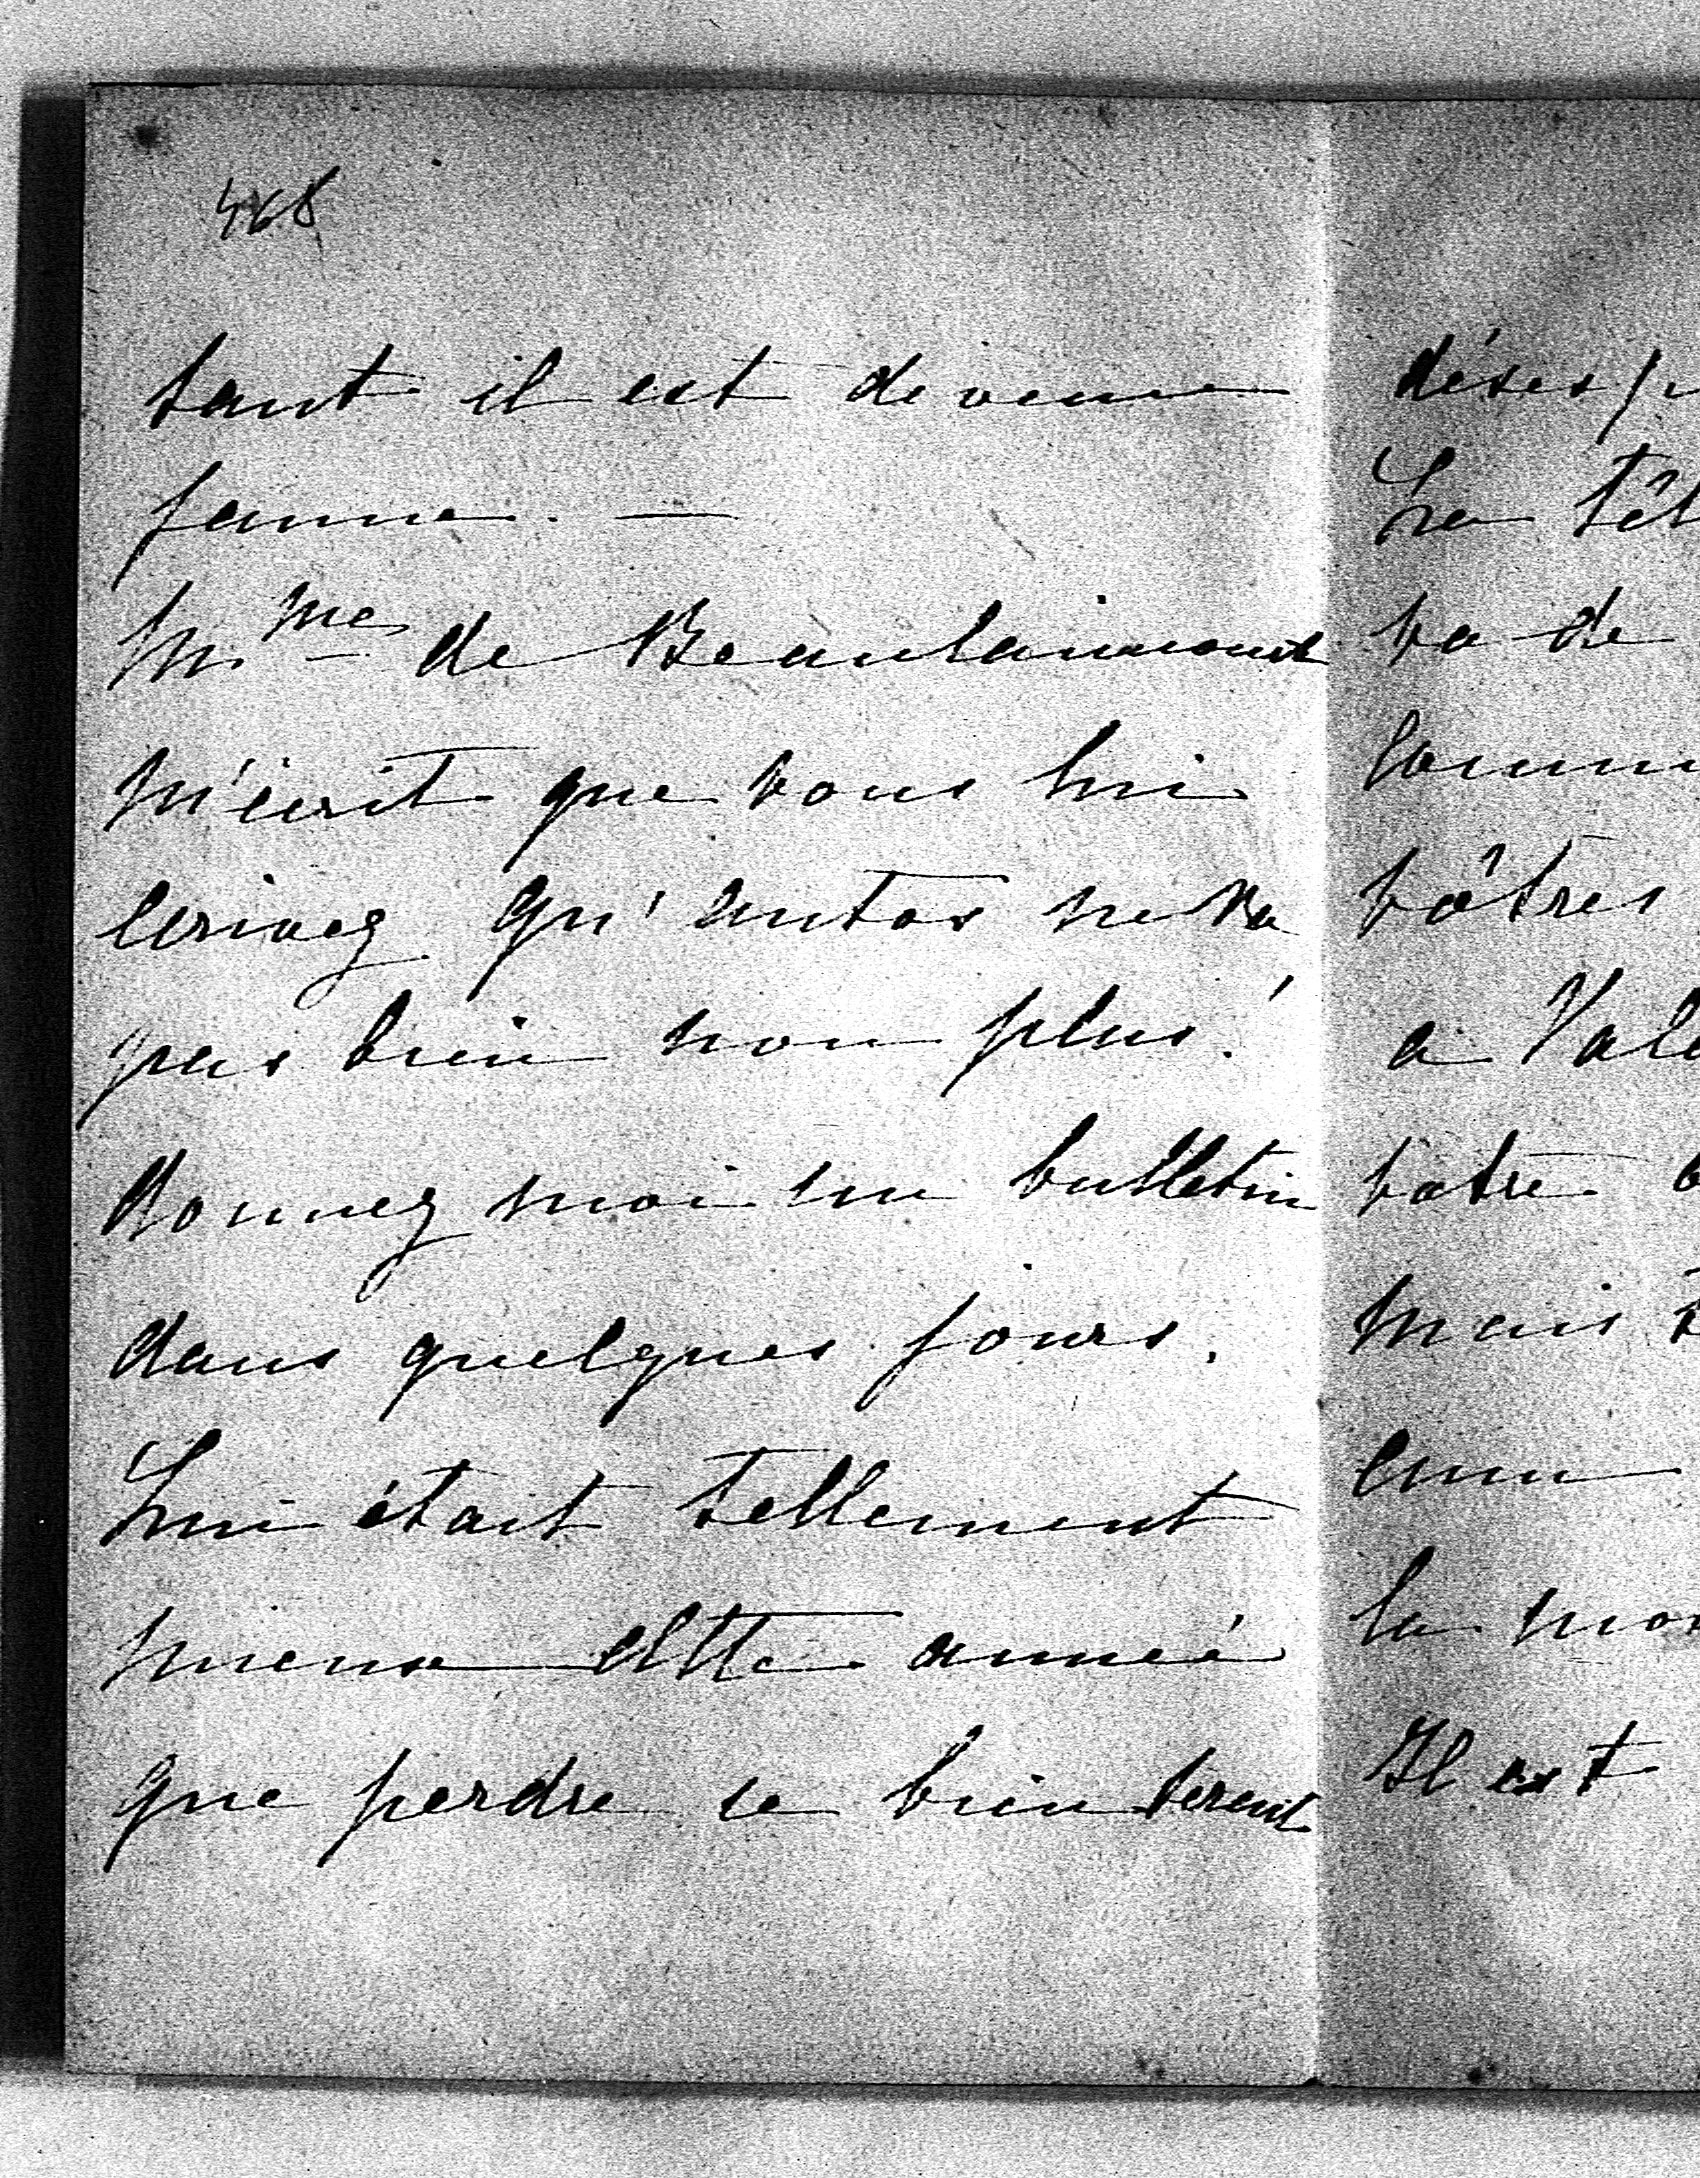 468
tant il est devenu
jaune. —
Mme de Beaulaincourt
m'écrit que vous lui
écrivez qu'Autas ne va
pas bien non plus!
Donnez moi un bulletin
dans quelques jours.
Lui était tellement
mieux cette année
que perdre ce bien serait
déses
La
va de
vôtres
a
votre
mais
la
Il est